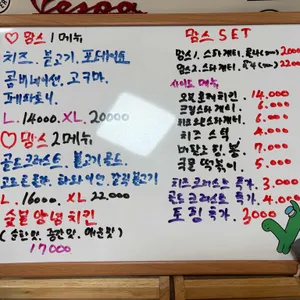 Vespa
♡ 맘스 1 메뉴
치즈. 불고기. 포테이토
콤비네이션. 고구마.
페퍼로니.
L. 14000. XL. 20000
♡ 맘스 2 메뉴
골드크러스트. 불고기골드.
고구마골드. 하와이안.
L. 16000. XL 22.000
숯불양념치킨
(순한맛. 중간맛. 매운맛)
17000
맘스 SET
맘스1. 스파게티. 콜라 22000
맘스2. 스파게티. 콜라
사이드 메뉴
오븐후라이치킨. 14.000
크림스파게티. 6.000
치즈오븐스파게티. 6.000
치즈스틱. 4.000
버팔로윙봉 7.000
국물떡볶이. 5.000
치즈크러스트 추가. 3.000
골드크러스트 추가. 4.000
토핑 추가. 3000